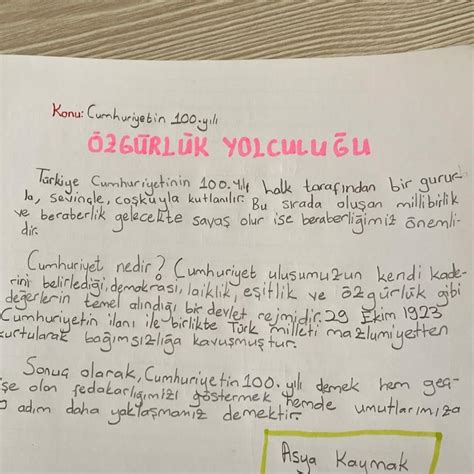 Konu: Cumhuriyetin 100.yılı
ÖZGÜRLÜK YOLCULUĞU
Türkiye Cumhuriyetinin 100.yılı halk tarafından bir gurur-
la, sevinçle, coşkuyla kutlanılır. Bu sırada oluşan millibirlik
ve beraberlik gelecekte savaş olur ise beraberliğimiz önemli-
dir.
Cumhuriyet nedir? Cumhuriyet ulusumuzun kendi kade-
rini belirlediği, demokrasi, laiklik, eşitlik ve özgürlük gibi
değerlerin temel alındığı bir devlet rejmidir. 29 Ekim 1923
Cumhuriyetin ilanı ile birlikte Türk milleti mazlumiyetten
kurtularak bağımsızlığa kavuşmuştur.
Sonuç olarak, Cumhuriyetin 100.yılı demek hem geç-
işe olan fedakarlığımızı göstermek hemde umutlarımıza
adım daha yaklaşmamız demektir.
Asya Kaymak